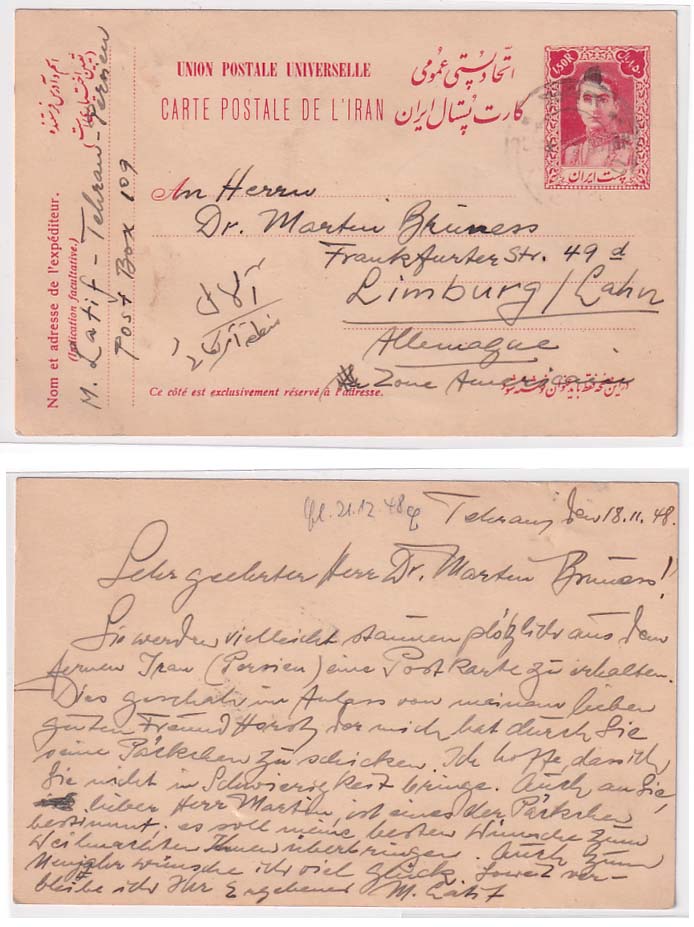 UNION POSTALE UNIVERSELLE
اتحاد پستی عمومی
CARTE POSTALE DE L'IRAN
کارت پستال ایران
1.50R
پست ایران
Nom et adresse de l'expéditeur.
(Indication facultative.)
M. Latif - Tehran - Persien
Post Box 109
An Herrn
Dr. Martin Brüness
Frankfurter Str. 49 d
Limburg/Lahn
Allemagne
Zone Americaine
آلمان
Ce côté est exclusivement réservé à l'adresse.
21.12.48
Tehran, den 18.11.48.
Sehr geehrter Herr Dr. Martin Brüness!
Sie werden vielleicht staunen plötzlich aus dem
fernen Iran (Persien) eine Postkarte zu erhalten.
Dies geschah im Anlass von meinem lieben
guten Freund Horst, der mich hat durch Sie
seine Päckchen zu schicken. Ich hoffe, dass ich
Sie nicht in Schwierigkeit bringe. Auch an Sie,
lieber Herr Martin, ist eines der Päckchen
bestimmt, es soll meine besten Wünsche zum
Weihnachten Ihnen überbringen. Auch zum
Neujahr wünsche ich viel Glück. Soweit ver-
bleibe ich Ihr Ergebener M. Latif